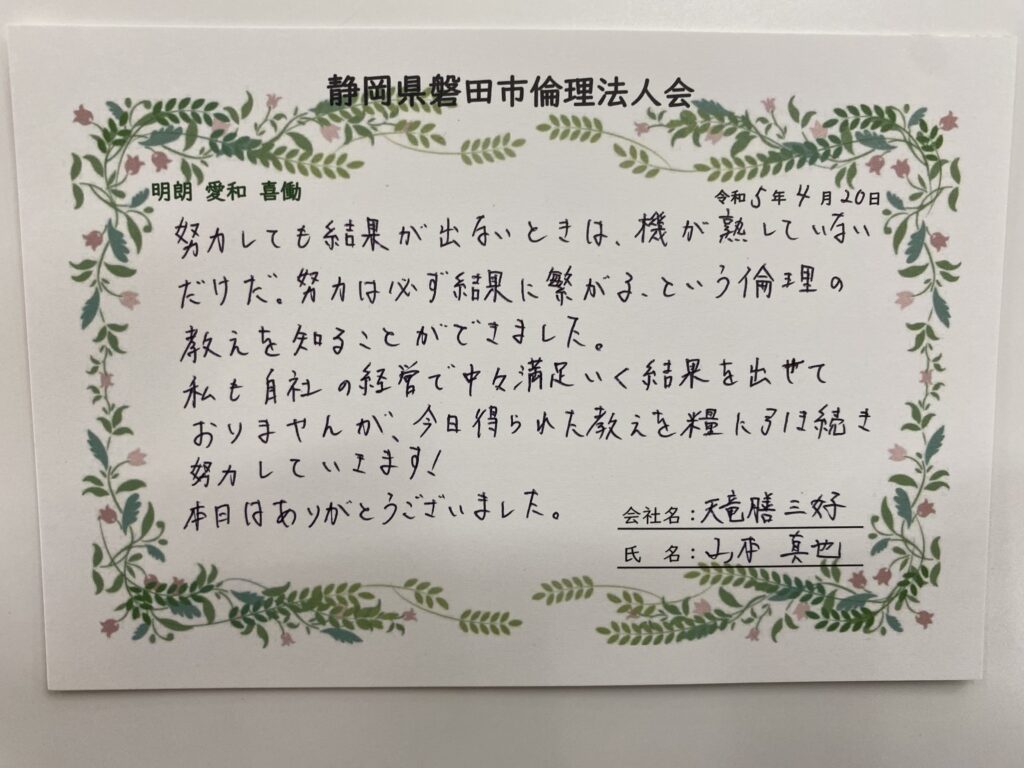 静岡県磐田市倫理法人会
明朗 愛和 喜働
令和 5 年 4 月 20 日
努力しても結果が出ないときは、機が熟していない
だけだ。努力は必ず結果に繋がる、という倫理の
教えを知ることができました。
私も自社の経営で中々満足いく結果を出せて
おりませんが、今日得られた教えを糧に引き続き
努力していきます!
本日はありがとうございました。
会社名:天竜膳 三好
氏 名:山本 真也